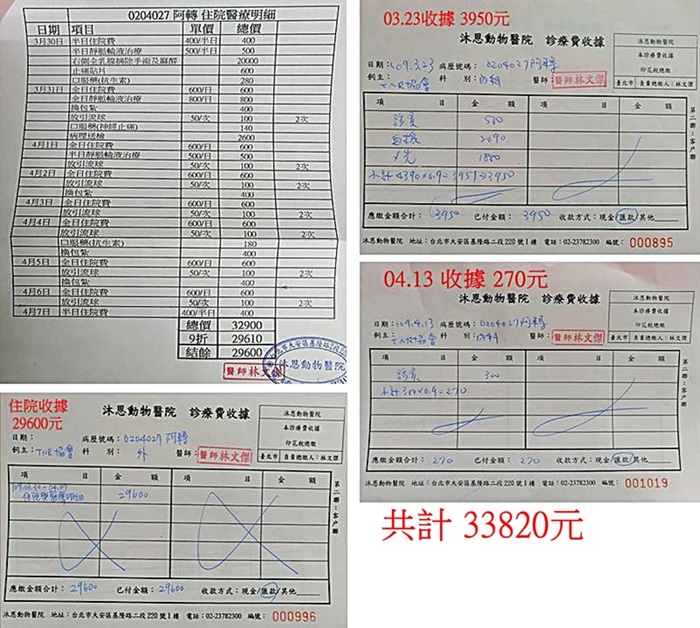 0204027 阿轉 住院醫療明細
日期 項目 單價 總價
3月30日 半日住院費 400/半日 400
半日靜脈輸液治療 500/半日 500
右側全乳腺摘除手術及麻醉 20000
止痛貼片 600
口服藥(抗生素) 280
3月31日 全日住院費 600/日 600
全日靜脈輸液治療 800/日 800
換包紮 400
放引流球 50/次 100 2次
口服藥(神經止痛) 140
病理送檢 2600
4月1日 全日住院費 600/日 600
半日靜脈輸液治療 500/日 500
放引流球 50/次 100 2次
4月2日 全日住院費 600/日 600
放引流球 50/次 100 2次
換包紮 400
4月3日 全日住院費 600/日 600
放引流球 50/次 100 2次
4月4日 全日住院費 600/日 600
放引流球 50/次 100 2次
口服藥(抗生素) 180
換包紮 400
4月5日 全日住院費 600/日 600
放引流球 50/次 100 2次
4月6日 全日住院費 600/日 600
放引流球 50/次 100 2次
4月7日 半日住院費 400/半日 400
總價 32900
9折 29610
結餘 29600
醫師林文傑
沐恩動物醫院
03.23收據 3950元
沐恩動物醫院 診療費收據
沐恩動物醫院
本診療費收據
印花稅總繳
臺北市 負責總繳人:林文傑
日期:109.3.23 病歷號碼:0204027阿轉
飼主:TNR協會 科別:內科 醫師:醫師林文傑
項 目 金 額 項 目 金 額
診察 500
2090
X光 1800
小計4390×0.9=3951⇒3950
第二聯:客戶聯
應繳金額合計:3950 已付金額:3950 收款方式:現金/匯款/其他
沐恩動物醫院 地址:台北市大安區基隆路二段220號1樓 電話:02-23782300 編號:000895
04.13 收據 270元
沐恩動物醫院 診療費收據
沐恩動物醫院
本診療費收據
印花稅總繳
臺北市 負責總繳人:林文傑
日期:109.4.13 病歷號碼:0204027阿轉
飼主:TNR協會 科別:內科 醫師:醫師林文傑
項 目 金 額 項 目 金 額
診察 300
小計300×0.9=270
第二聯:客戶聯
應繳金額合計:270 已付金額:270 收款方式:現金/匯款/其他
沐恩動物醫院 地址:台北市大安區基隆路二段220號1樓 電話:02-23782300 編號:001019
住院收據
29600元
沐恩動物醫院 診療費收據
沐恩動物醫院
本診療費收據
印花稅總繳
臺北市 負責總繳人:林文傑
日期: 病歷號碼:0204027阿轉
飼主:TNR協會 科別:外 醫師:醫師林文傑
項 目 金 額 項 目 金 額
109.03.30-04.07
住院醫療明細 29600
第二聯:客戶聯
應繳金額合計:29600 已付金額:29600 收款方式:現金/匯款/其他
沐恩動物醫院 地址:台北市大安區基隆路二段220號1樓 電話:02-23782300 編號:000996
共計 33820元